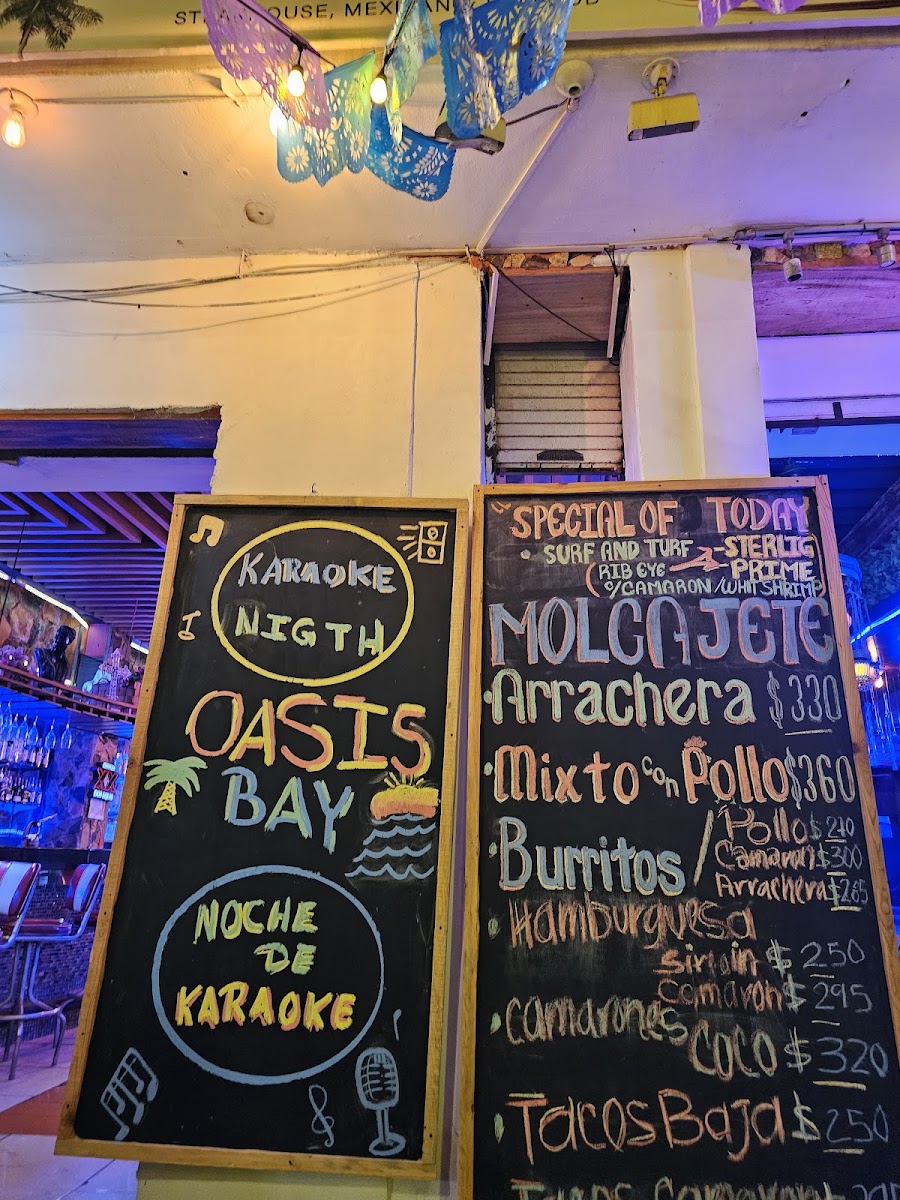 STEAKHOUSE, MEXICAN
KARAOKE
NIGTH
OASIS
BAY
NOCHE
DE
KARAOKE
"SPECIAL OF TODAY
• SURF AND TURF -STERLIG
(RIB EYE - PRIME
c/CAMARON/WHIT SHRIMP)
MOLCAJETE
• Arrachera $330
• Mixto con Pollo $360
• Burritos / Pollo $210
Camaron $300
Arrachera $265
• Hamburguesa
sirloin $250
Camaron $295
• Camarones
COCO $320
• Tacos Baja $250
Tacos Camaron